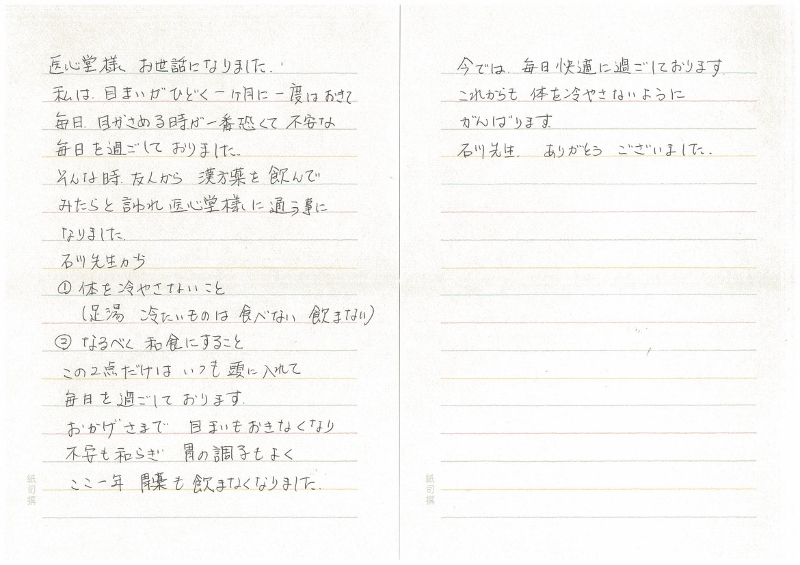 医心堂様、お世話になりました。
私は、目まいがひどく一ヶ月に一度はおきて
毎日、目がさめる時が一番恐くて 不安な
毎日を過ごして おりました。
そんな時、友人から 漢方薬を 飲んで
みたらと 言われ 医心堂様に 通う事に
なりました。
石川先生から
① 体を冷やさないこと
(足湯 冷たいものは 食べない 飲まない)
② なるべく 和食にすること
この2点だけは いつも 頭に入れて
毎日を 過ごして おります。
おかげさまで 目まいもおきなくなり
不安も和らぎ 胃の調子もよく
ここ一年 胃薬も 飲まなくなりました。
紙司撰
今では、毎日快適に過ごしております。
これからも 体を冷やさないように
がんばります。
石川先生、 ありがとう ございました。
紙司撰